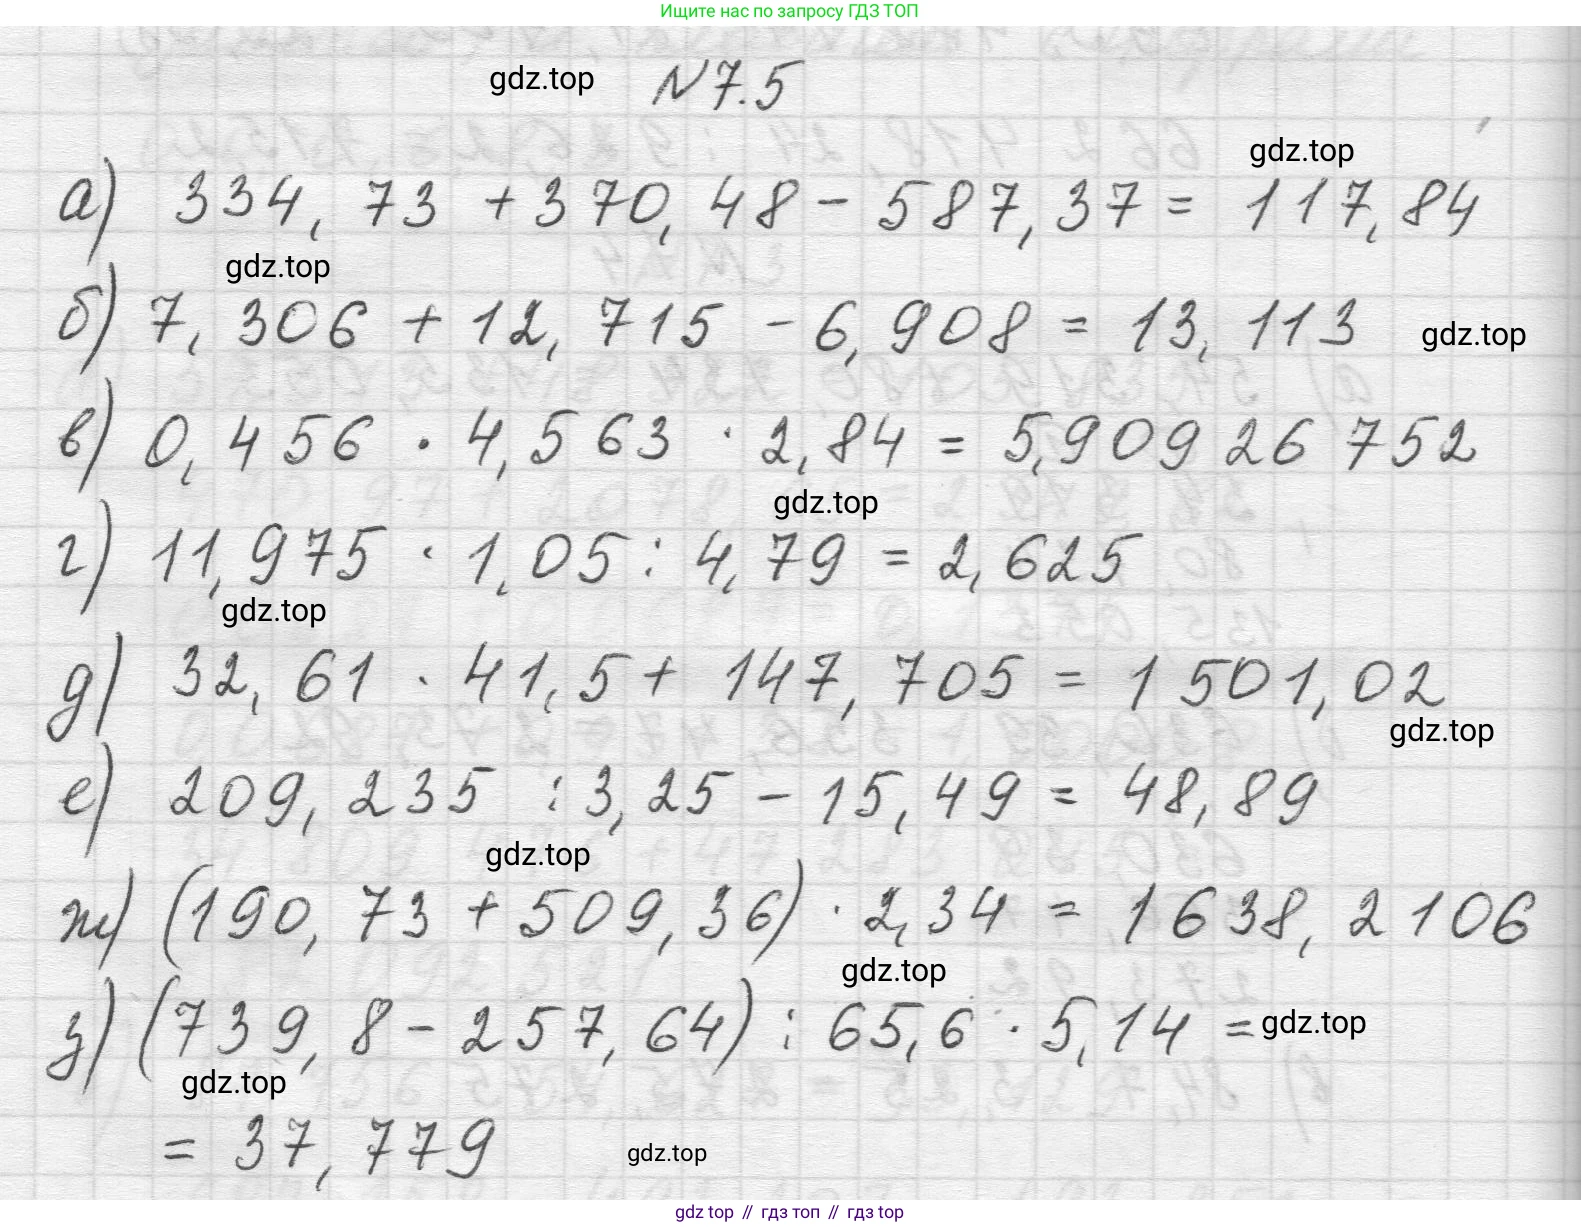 Ищите нас по запросу ГДЗ ТОП
gdz.top N7.5
gdz.top
а) 334,73 + 370,48 - 587,37 = 117,84
gdz.top
б) 7,306 + 12,715 - 6,908 = 13,113 gdz.top
в) 0,456 · 4,563 · 2,84 = 5,90926752
gdz.top
г) 11,975 · 1,05 : 4,79 = 2,625
gdz.top
д) 32,61 · 41,5 + 147,705 = 1501,02
gdz.top
е) 209,235 : 3,25 - 15,49 = 48,89
gdz.top
ж) (190,73 + 509,36) · 2,34 = 1638,2106
gdz.top
з) (739,8 - 257,64) : 65,6 · 5,14 = gdz.top
gdz.top
= 37,779 gdz.top
gdz top // гдз топ // гдз top